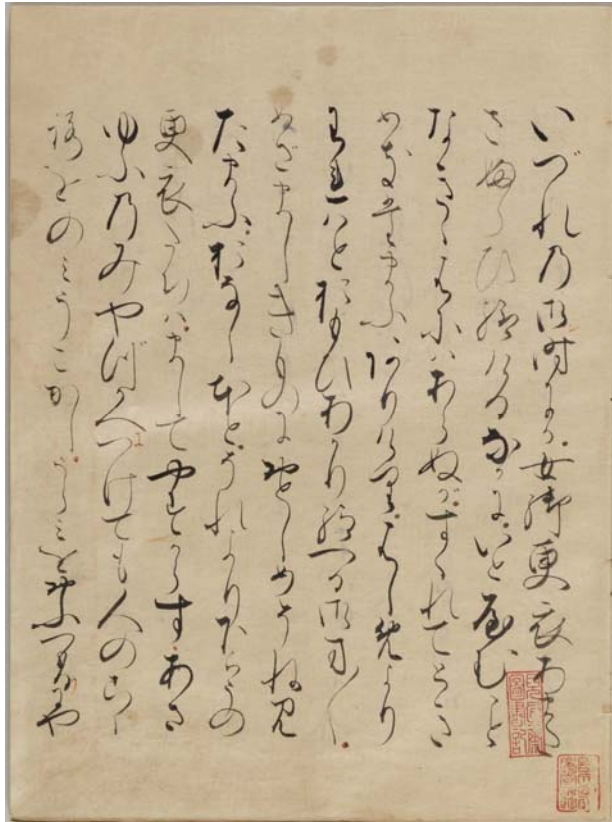 いづれの御時にか女御更衣あまた
さふらひ給けるなかにいとやむごと
なきゝはにはあらぬがすぐれてとき
めきたまふありけりはじめより
われはとおもひあがり給へる御方〳〵
めざましきものにおとしめそねみ
たまふおなじほどそれより下らうの
更衣たちはましてやすからずあさ
ゆふのみやづかへにつけても人のこゝ
ろをのみうごかしうらみをおふつもりにや